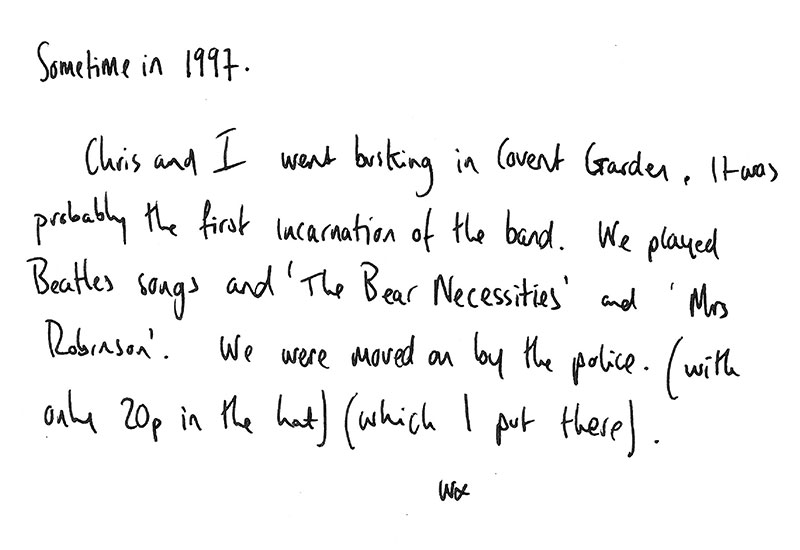 Sometime in 1997.
Chris and I went busking in Covent Garden. It was
probably the first incarnation of the band. We played
Beatles songs and 'The Bear Necessities' and 'Mrs
Robinson'. We were moved on by the police. (with
only 20p in the hat) (which I put there).
Wx